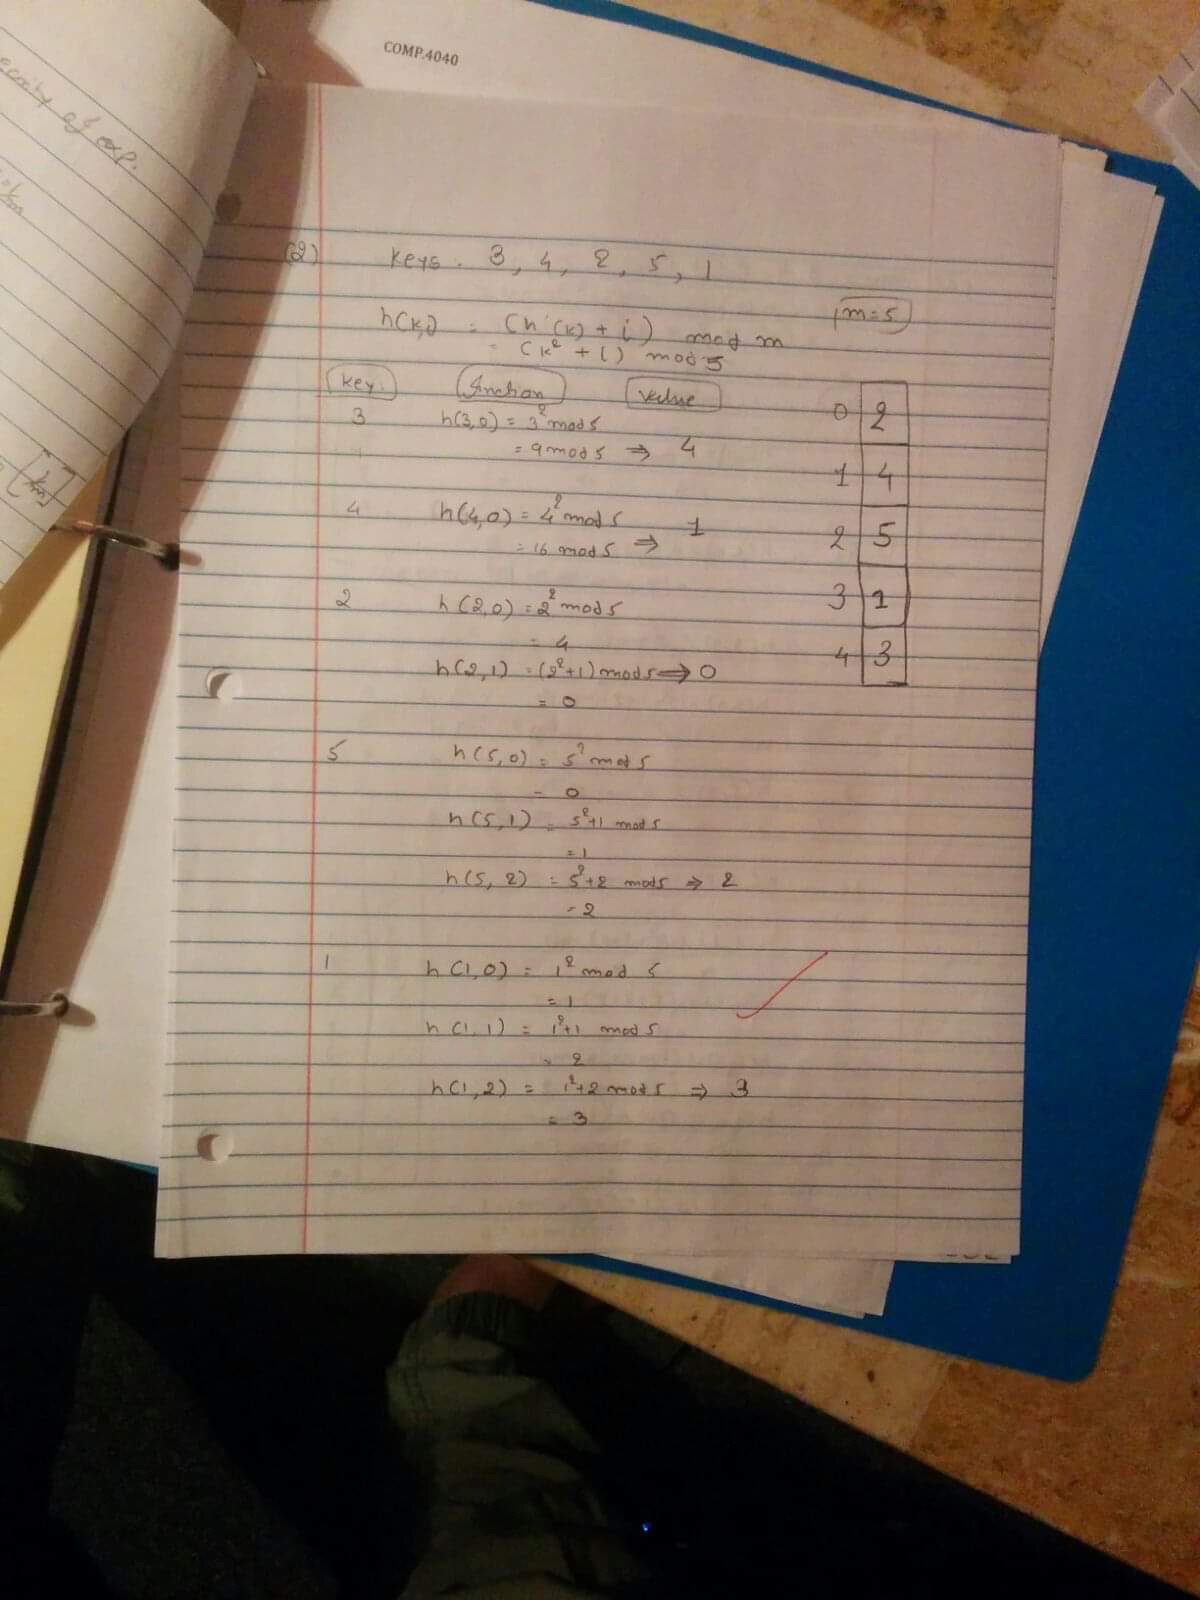 COMP.4040
of exp.
(2) Keys. 3, 4, 2, 5, 1
m=5
h(k,i) = (h'(k) + i) mod m
= (k² + i) mod 5
Key. function Value
3 h(3,0) = 3² mod 5
= 9 mod 5 ⇒ 4
4 h(4,0) = 4² mod 5
= 16 mod 5 ⇒ 1
2 h(2,0) = 2² mod 5
= 4
h(2,1) = (2²+1) mod 5 ⇒ 0
= 0
5 h(5,0) = 5² mod 5
= 0
h(5,1) = 5²+1 mod 5
= 1
h(5,2) = 5²+2 mod 5 ⇒ 2
= 2
1 h(1,0) = 1² mod 5
= 1
h(1,1) = 1²+1 mod 5
= 2
h(1,2) = 1²+2 mod 5 ⇒ 3
= 3
0 2
1 4
2 5
3 1
4 3